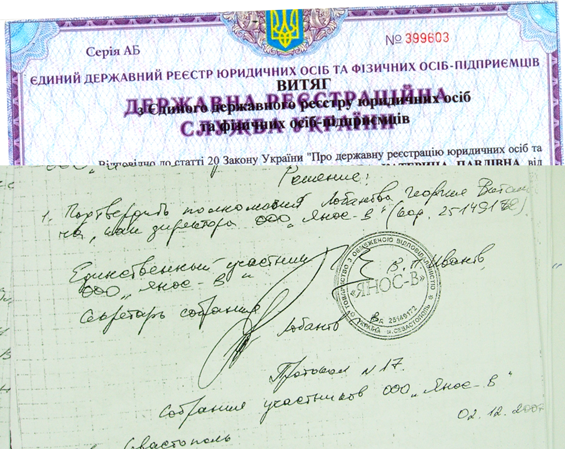 Серія АБ
№ 399603
ЄДИНИЙ ДЕРЖАВНИЙ РЕЄСТР ЮРИДИЧНИХ ОСІБ ТА ФІЗИЧНИХ ОСІБ-ПІДПРИЄМЦІВ
ВИТЯГ
ДЕРЖАВНА РЕЄСТРАЦІЙНА
з Єдиного державного реєстру юридичних осіб
СЛУЖБА УКРАЇНИ
та фізичних осіб-підприємців
Відповідно до статті 20 Закону України "Про державну реєстрацію юридичних осіб та
КАТЕРИНА ПАВЛІВНА від
Решение:
1. Подтвердить полномочия Лобантва Георгия
как директора ООО „Янос-В"
Единственный участник
ООО „Янос-В"
Секретарь собрания
Лобантв
«ЯНОС-В»
Протокол N 17.
Собрания участников ООО „Янос-В"
02.12.200
Севастополь